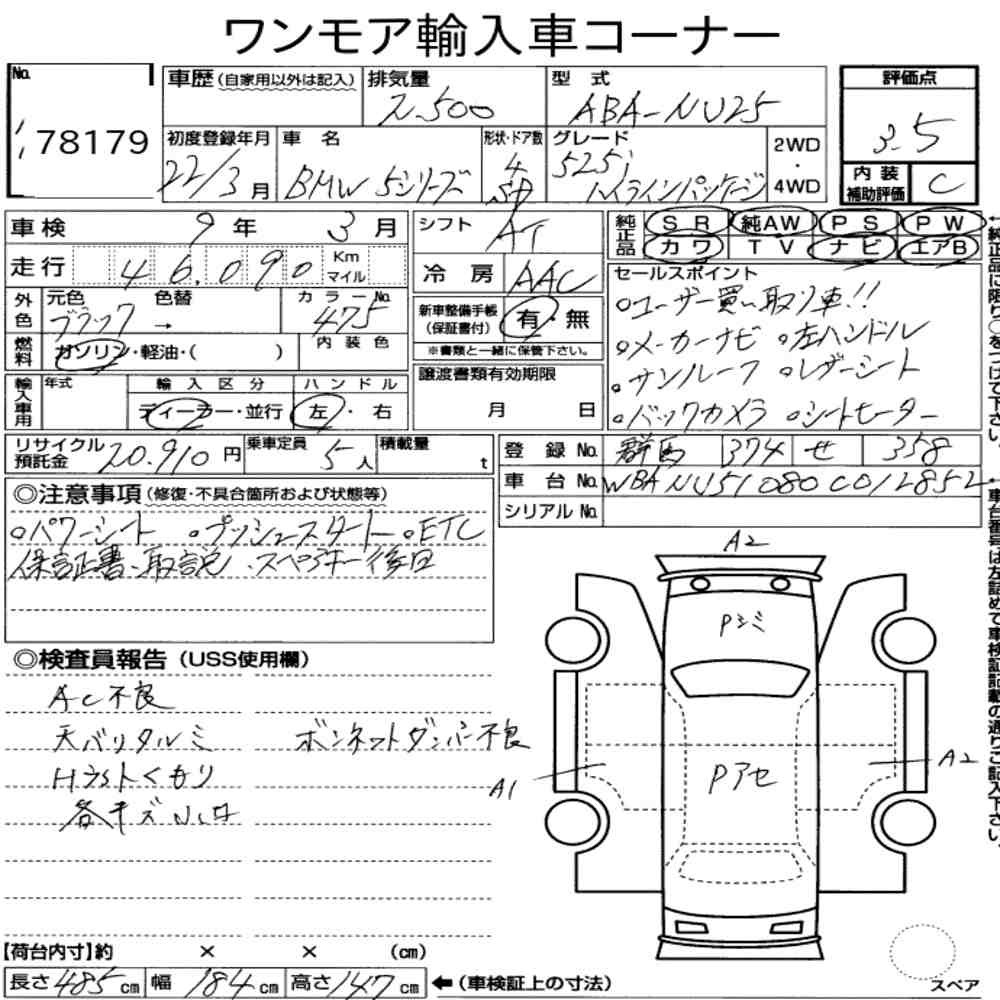 ワンモア輸入車コーナー
No. 78179
車歴 (自家用以外は記入) 排気量 2,500 型式 ABA-NU25 評価点 3.5
初度登録年月 22/3月 車名 BMW 5シリーズ 形状・ドア数 4 SD グレード 525i ハイラインパッケージ 2WD・4WD 内装補助評価 C
車検 9年 3月 シフト AT 純正品 SR 純AW PS PW
カワ TV ナビ エアB
走行 46,090 Km マイル 冷房 AAC
セールスポイント
○ユーザー買い取り車!!
○メーカーナビ ○左ハンドル
○サンルーフ ○レザーシート
○バックカメラ ○シートヒーター
外色 元色 ブラック 色替 → カラーNo. 475
新車整備手帳(保証書付) 有・無
※書類と一緒に保管下さい。
燃料 ガソリン・軽油・( ) 内装色
譲渡書類有効期限 月 日
輸入車用 年式 輸入区分 ハンドル
ディーラー・並行 左・右
リサイクル預託金 20,910円 乗車定員 5人 積載量 t
登録No. 群馬 374 せ 358
車台No. WBANU51080C012852
シリアルNo.
←純正品に限り○をつけて下さい。
←車台番号は左詰めで車検証記載の通りご記入下さい。
◎注意事項(修復・不具合箇所および状態等)
○パワーシート ○プッシュスタート ○ETC
保証書、取説、スペアキー後日
◎検査員報告(USS使用欄)
AC不良
天バリタルミ
ボンネットダンパー不良
Hライトくもり
各キズ
A2
Pシミ
Pアセ
A1
A2
スペア
【荷台内寸】約 × × (cm)
長さ 485cm 幅 184cm 高さ 147cm ←(車検証上の寸法)